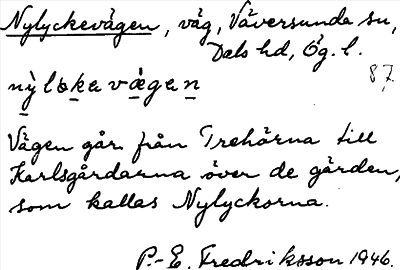 Nylyckevägen, väg, Väversunda sn,
Dals hd, Ög. l.
87.
nỳlo̤kevä̀gen
Vägen går från Trehörna till
Karlsgårdarna över de gärden,
som kallas Nylyckorna.
P.-E. Fredriksson 1946.